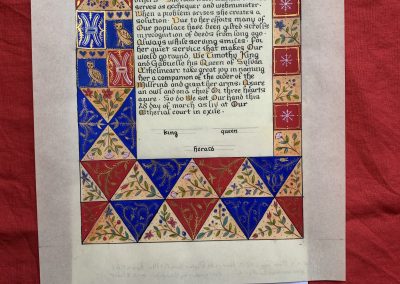 serves as exchequer and webminister.
When a problem arises she creates a
solution. Due to her efforts many of
Our populace have been gifted scrolls
in recognition of deeds from long ago.
Always while serving smiles. For
her quiet service that makes Our
world go round. We Timothy King
and Gabrielle his Queen of Sylvan
Æthelmearc take great joy in naming
her a companion of the order of the
Millrind and grant her arms: Azure
an owl and on a chief Or three hearts
azure. So do We set Our hand this
28 day of march as lv at Our
Ætherial court in exile.
king queen
herald